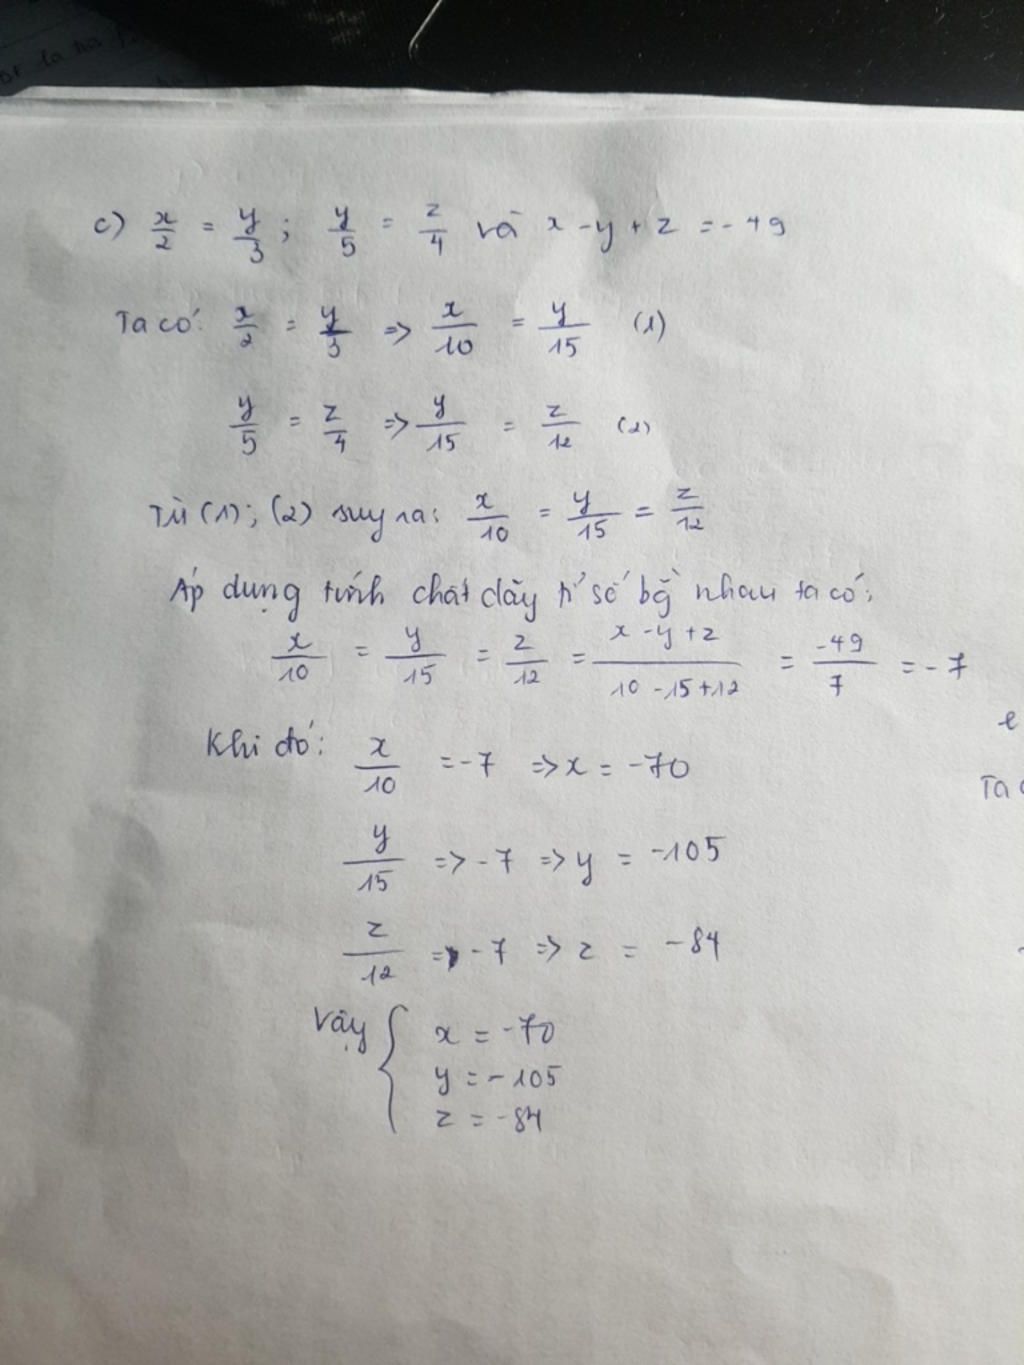 c) x/2 = y/3 ; y/5 = z/4 và x - y + z = - 49
Ta có: x/2 = y/3 => x/10 = y/15 (1)
y/5 = z/4 => y/15 = z/12 (2)
Từ (1); (2) suy ra: x/10 = y/15 = z/12
Áp dụng tính chất dãy tỉ số bg nhau ta có:
x/10 = y/15 = z/12 = (x - y + z)/(10 - 15 + 12) = -49/7 = - 7
Khi đó: x/10 = - 7 => x = -70
y/15 => - 7 => y = -105
z/12 = - 7 => z = -84
Vậy { x = -70
y = - 105
z = -84
e
Ta